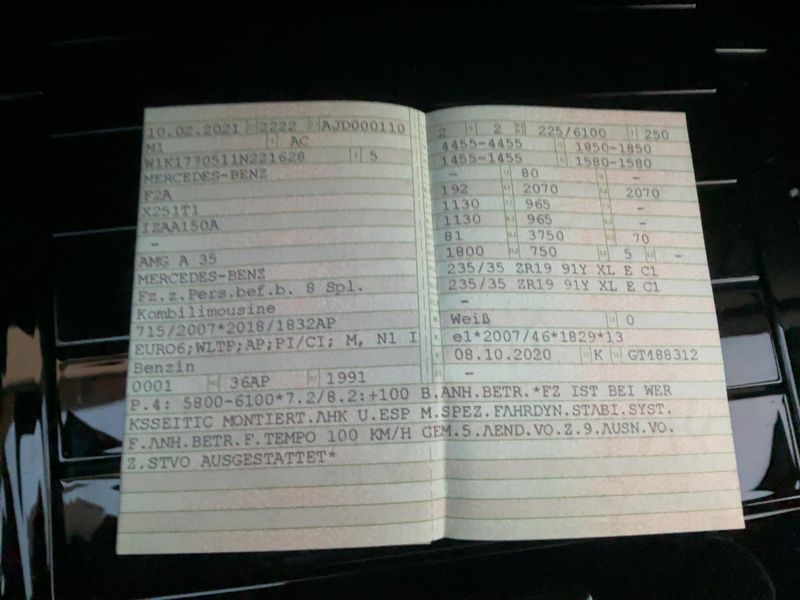 10.02.2021 2222 AJD000110
M1 AC
W1K1770511N221628 5
MERCEDES-BENZ
F2A
X251T1
IZAA150A
-
AMG A 35
MERCEDES-BENZ
Fz.z.Pers.bef.b. 8 Spl.
Kombilimousine
715/2007*2018/1832AP
EURO6;WLTP;AP;PI/CI; M, N1 I
Benzin
0001 36AP 1991
2 2 225/6100 250
4455-4455 1850-1850
1455-1455 1580-1580
- 80 -
192 2070 2070
1130 965 -
1130 965 -
81 3750 70
1800 750 5 -
235/35 ZR19 91Y XL E C1
235/35 ZR19 91Y XL E C1
-
Weiß 0
e1*2007/46*1829*13
08.10.2020 K GT488312
-
P.4: 5800-6100*7.2/8.2:+100 B.ANH.BETR.*FZ IST BEI WER
KSSEITIG MONTIERT.AHK U.ESP M.SPEZ.FAHRDYN.STABI.SYST.
F.ANH.BETR.F.TEMPO 100 KM/H GEM.5.AEND.VO.Z.9.AUSN.VO.
Z.STVO AUSGESTATTET*